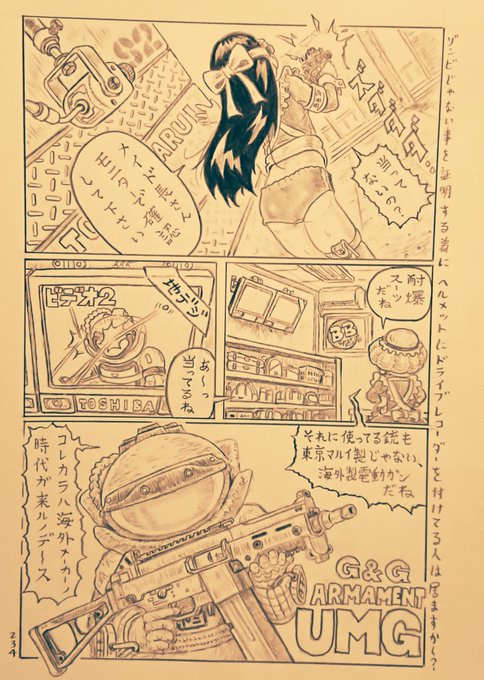 ゾンビじゃない事を証明する為に ヘルメットにドライブレコーダーを付けてる人は居ますかー?
当って
ないの?
メイド長さん
モニターで確認
して下さい
ARUI
TO
耐爆
スーツ
だね
BB
地デジ
ビデオ2
あ〜っ
当ってるね
TOSHIBA
それに使ってる銃も
東京マルイ製じゃない、
海外製電動ガン
だね
コレカラハ海外メーカーノ
時代が来ルノデース
G&G
ARMAMENT
UMG
234